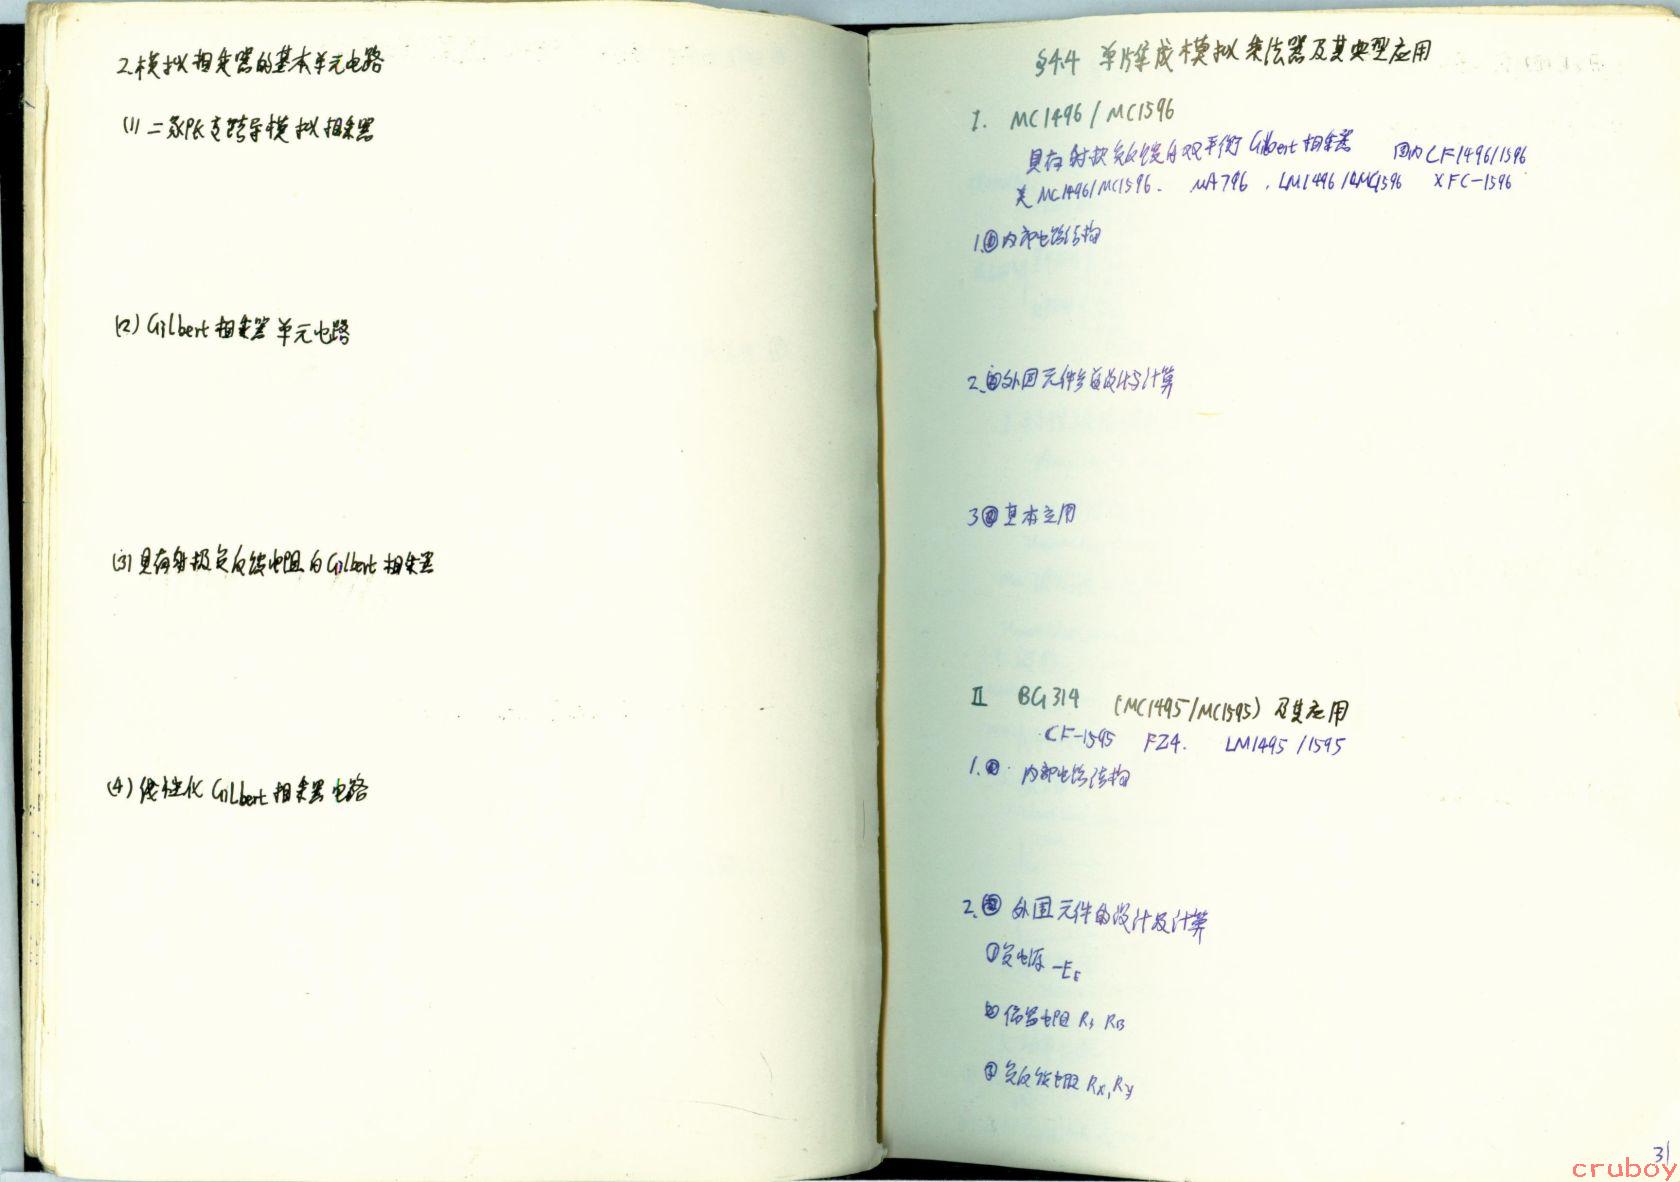 2.模拟相乘器的基本单元电路
(1) 二象限变跨导模拟相乘器
(2) Gilbert相乘器单元电路
(3) 具有射极负反馈电阻的Gilbert相乘器
(4) 线性化Gilbert相乘器电路
§4.4 单片集成模拟乘法器及其典型应用
I. MC1496/MC1596
具有射极负反馈的双平衡Gilbert相乘器 国内CF1496/1596
美MC1496/MC1596. μA796, LM1496/LM1596 XFC-1596
1.①内部电路结构
2.②外围元件参数设计与计算
3③基本应用
II BG314 (MC1495/MC1595)及其应用
CF-1595 FZ4. LM1495/1595
1.①. 内部电路结构
2.② 外围元件的设计及计算
①负电源 -EE
②偏置电阻 R3 R13
③负反馈电阻 Rx, Ry
31
cruboy